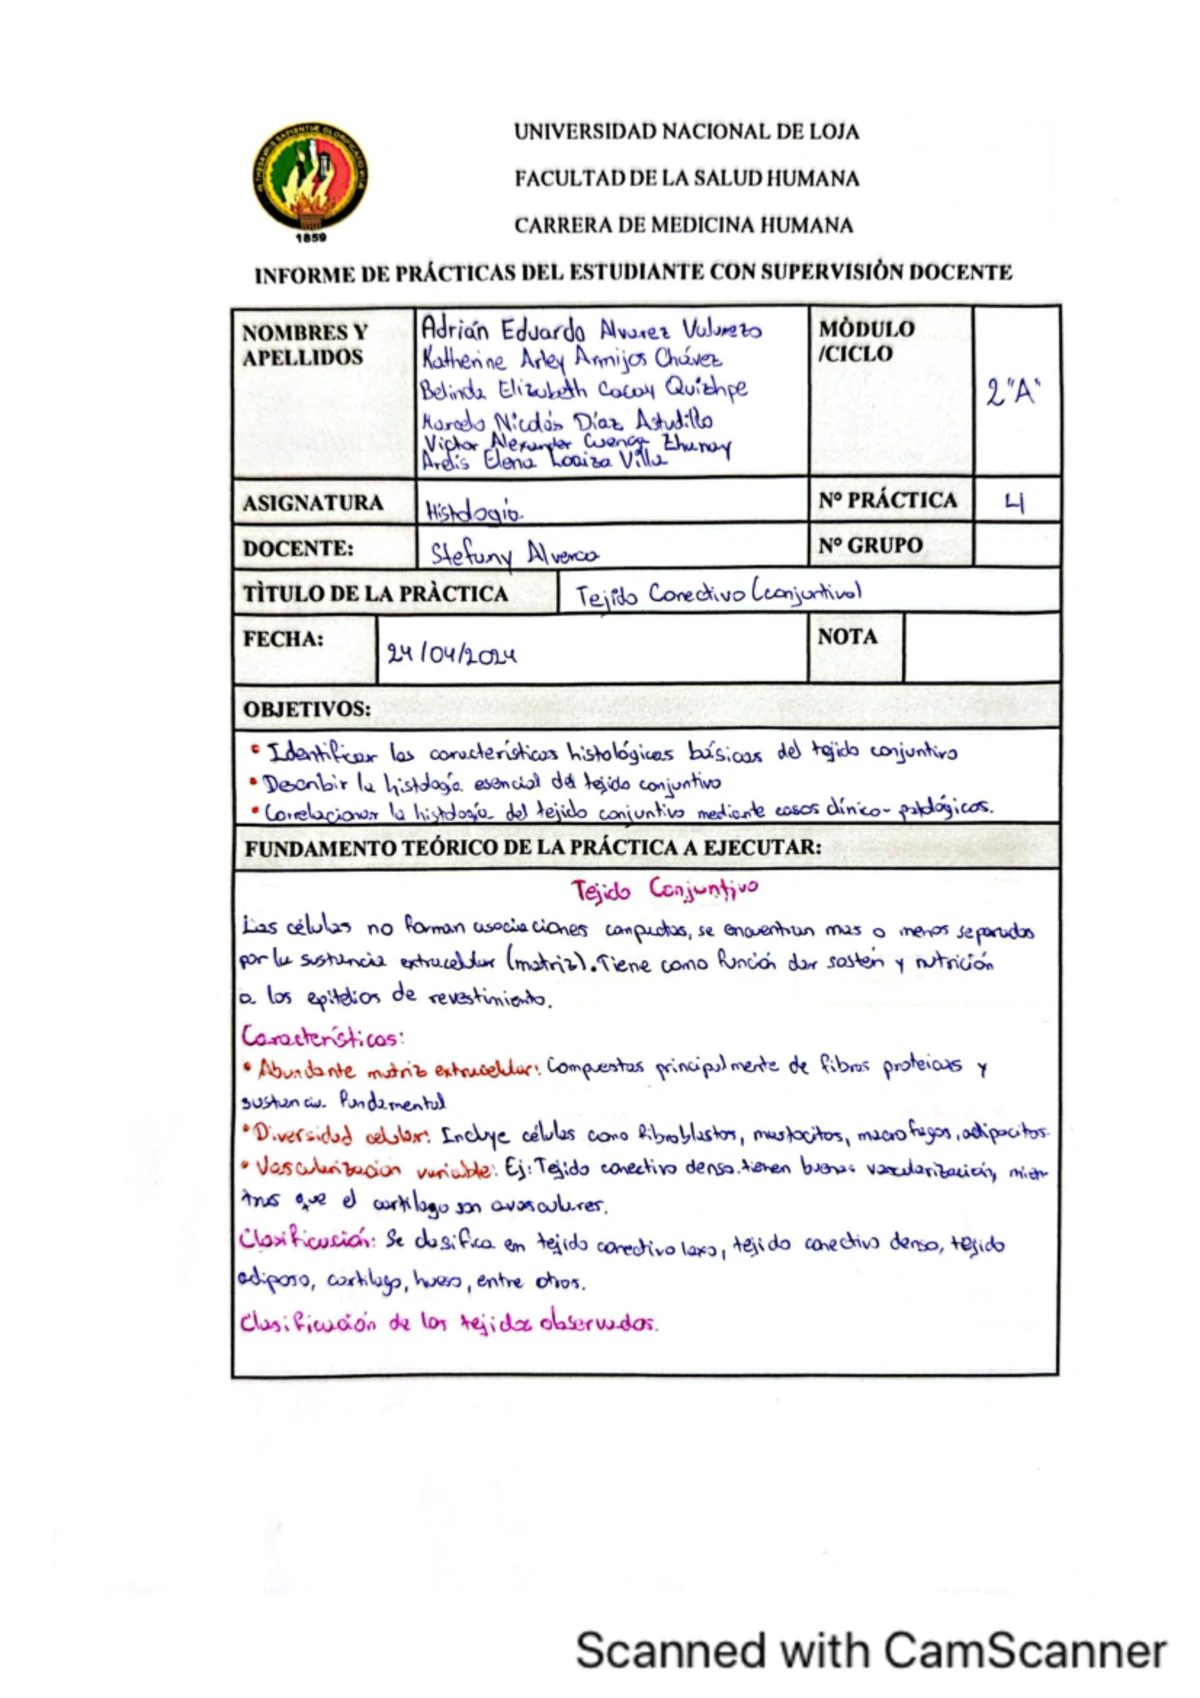 UNIVERSIDAD NACIONAL DE LOJA
FACULTAD DE LA SALUD HUMANA
CARRERA DE MEDICINA HUMANA
1859
INFORME DE PRÁCTICAS DEL ESTUDIANTE CON SUPERVISIÓN DOCENTE
NOMBRES Y APELLIDOS
Adrián Eduardo Alvarez Valarezo
Katherine Arley Armijos Chávez
Belinda Elizabeth Cocoy Quizhpe
Marcelo Nicolás Díaz Astudillo
Victor Alexander Cuenca Zhunay
Arelis Elena Loaiza Villa
MÒDULO /CICLO
2"A"
ASIGNATURA
Histología
Nº PRÁCTICA
4
DOCENTE:
Stefany Alverca
Nº GRUPO
TÌTULO DE LA PRÀCTICA
Tejido Conectivo (conjuntivo)
FECHA:
24/04/2024
NOTA
OBJETIVOS:
• Identificar las características histológicas básicas del tejido conjuntivo
• Describir la histología esencial del tejido conjuntivo
• Correlacionar la histología del tejido conjuntivo mediante casos clínico-patológicos.
FUNDAMENTO TEÓRICO DE LA PRÁCTICA A EJECUTAR:
Tejido Conjuntivo
Las células no forman asociaciones compactas, se encuentran mas o menos separadas
por la sustancia extracelular (matriz). Tiene como función dar sostén y nutrición
a los epitelios de revestimiento.
Características:
• Abundante matriz extracelular: Compuestas principalmente de fibras proteicas y
sustancia fundamental
• Diversidad celular: Incluye células como fibroblastos, mastocitos, macrofagos, adipocitos.
• Vascularización variable: Ej: Tejido conectivo denso tienen buena vascularización, mien-
tras que el cartílago son avasculares.
Clasificación: Se clasifica en tejido conectivo laxo, tejido conectivo denso, tejido
adiposo, cartílago, hueso, entre otros.
Clasificación de los tejidos observados.
Scanned with CamScanner